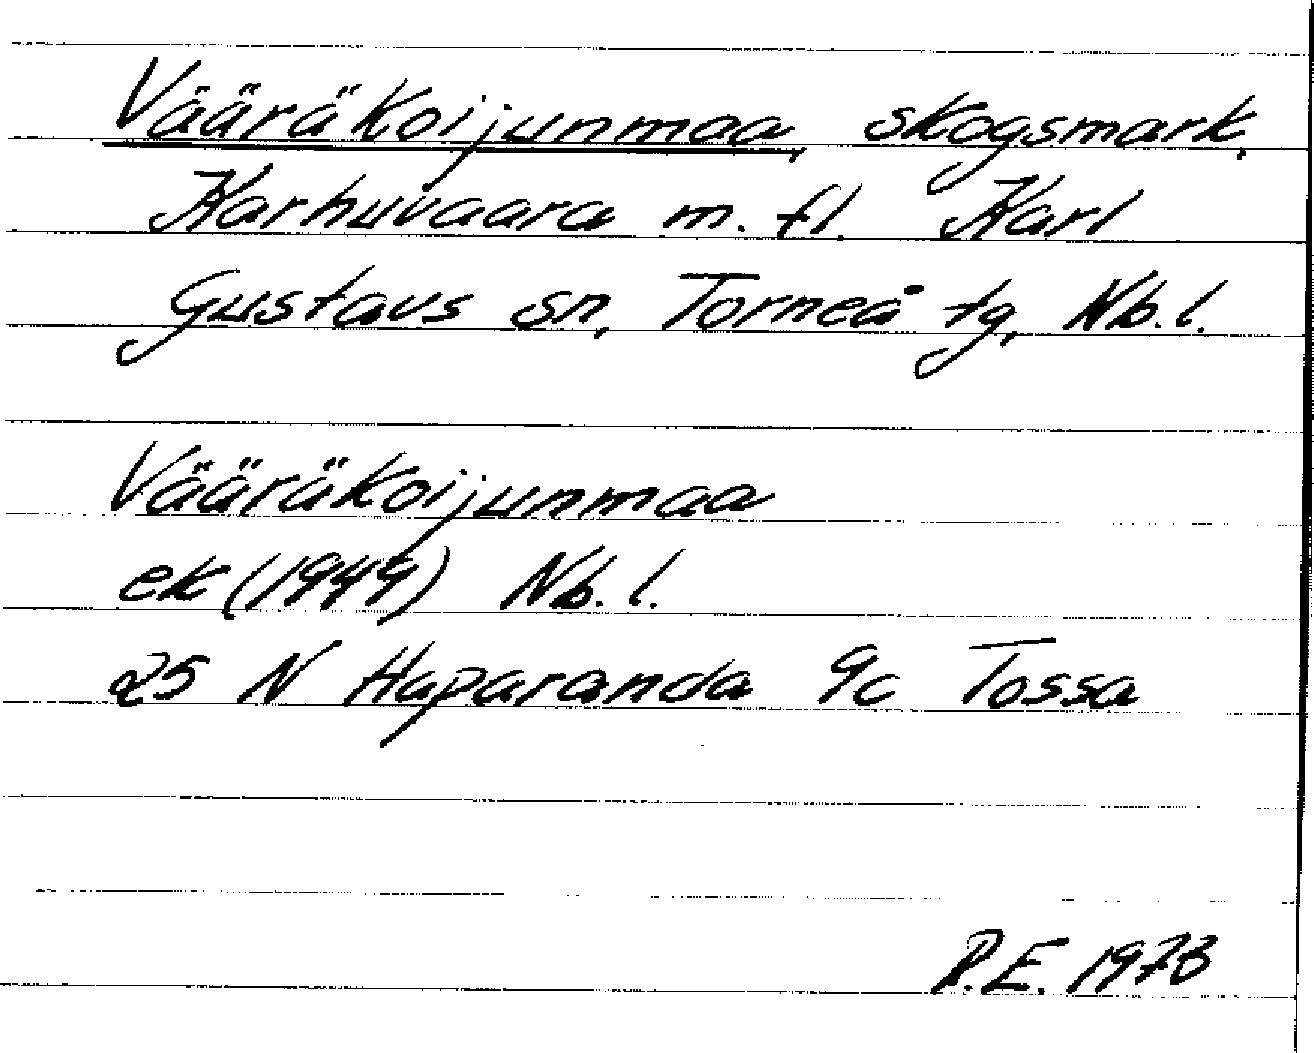 Vääräkoijunmaa, skogsmark,
Karhuvaara m. fl. Karl
Gustavs sn, Torneå tg, Nb. l.
Vääräkoijunmaa
ek (1949) Nb. l.
25 N Haparanda 9c Tossa
R.E. 1973